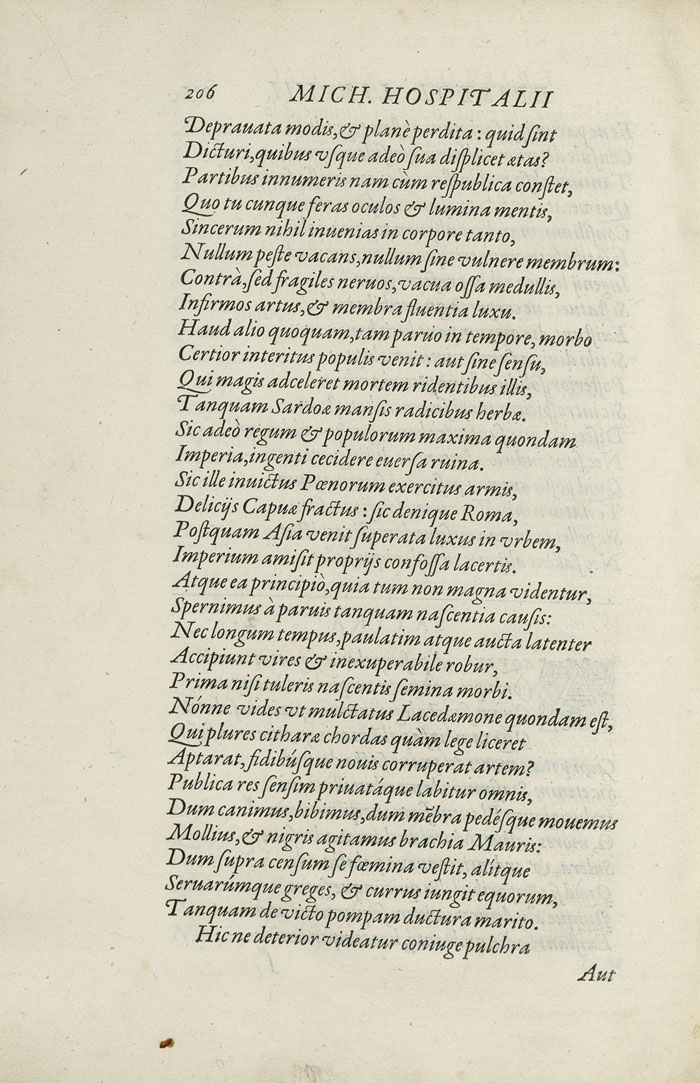 206 MICH. HOSPITALII
Deprauata modis,& planè perdita : quid ſint
Dicturi,quibus vſque adeò ſua diſplicet ætas?
Partibus innumeris nam cùm reſpublica conſtet,
Quo tu cunque feras oculos & lumina mentis,
Sincerum nihil inuenias in corpore tanto,
Nullum peſte vacans,nullum ſine vulnere membrum:
Contrà,ſed fragiles neruos,vacua oſſa medullis,
Infirmos artus,& membra fluentia luxu.
Haud alio quoquam,tam paruo in tempore, morbo
Certior interitus populis venit : aut ſine ſenſu,
Qui magis adceleret mortem ridentibus illis,
Tanquam Sardoæ manſis radicibus herbæ.
Sic adeò regum & populorum maxima quondam
Imperia,ingenti cecidere euerſa ruina.
Sic ille inuictus Pœnorum exercitus armis,
Delicijs Capuæ fractus : ſic denique Roma,
Poſtquam Aſia venit ſuperata luxus in vrbem,
Imperium amiſit proprijs confoſſa lacertis.
Atque ea principiò,quia tum non magna videntur,
Spernimus à paruis tanquam naſcentia cauſis:
Nec longum tempus,paulatim atque aucta latenter
Accipiunt vires & inexuperabile robur,
Prima niſi tuleris naſcentis ſemina morbi.
Nónne vides vt mulctatus Lacedæmone quondam eſt,
Qui plures citharæ chordas quàm lege liceret
Aptarat,fidibúſque nouis corruperat artem?
Publica res ſenſim priuatáque labitur omnis,
Dum canimus,bibimus,dum mēbra pedéſque mouemus
Mollius,& nigris agitamus brachia Mauris:
Dum ſupra cenſum ſe fœmina veſtit, alítque
Seruarúmque greges, & currus iungit equorum,
Tanquam de victo pompam ductura marito.
Hic ne deterior videatur coniuge pulchra
Aut